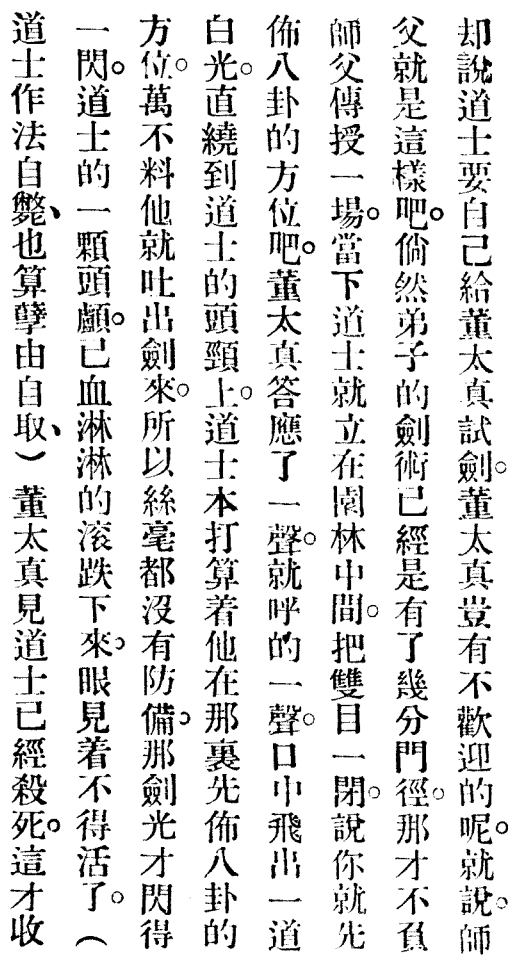 却說道士要自己給董太真試劍。董太真豈有不歡迎的呢。就說。師
父就是這樣吧。倘然弟子的劍術已經是有了幾分門徑。那才不負
師父傳授一場。當下道士就立在園林中間。把雙目一閉。說你就先
佈八卦的方位吧。董太真答應了一聲。就呼的一聲。口中飛出一道
白光。直繞到道士的頭頸上。道士本打算着他在那裏先佈八卦的
方位。萬不料他就吐出劍來。所以絲毫都沒有防備。那劍光才閃得
一閃。道士的一顆頭顱。已血淋淋的滚跌下來。眼見着不得活了。（
道士作法自斃、也算孽由自取、）董太真見道士已經殺死。這才收